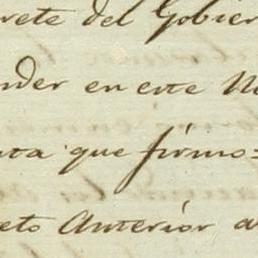 rete del Gobier
nder en este N
nta que firmo=
eto Anterior a